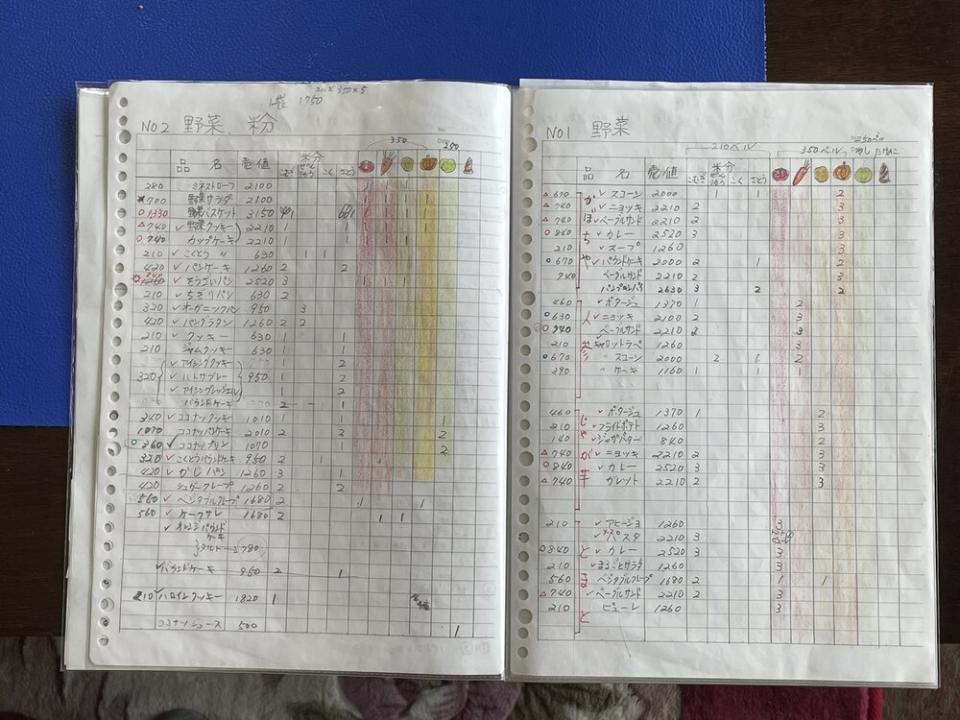 350×5
1750
No2 野菜、粉
350 250
品 名 売値 粉分 こむぎ こく さとう
280 ミネストローフ 2100 1 1 1
700 野菜サラダ 2100 1 1 1 1
1330 野菜バスケット 3150 1 1 1 1
740 野菜クッキー 2210 1 1 1 1 1
740 カップケーキ 2210 1 1 1 1 1
210 こくとう 〃 630 1 1
420 パンケーキ 1260 2 2
1260 そうざいパン 2520 3 1 1 1
210 ちぎりパン 630 2
320 オーガニックパン 950 3
420 パングラタン 1260 2 2
210 クッキー 630 1
210 ジャムクッキー 630 1
アイシングクッキー 1 2
320 ハトサブレー 950 1 2
アイシングプレッツェル 1 2
パウンドケーキ 2 1
340 ココナックッキー 1010 1 1
1090 ココナッパンケーキ 2010 2 2 2
360 ココナップリン 1070 1 2
320 こくとうパウンドケーキ 950 2 1
420 かしパン 1260 3 1
420 シュガークレープ 1260 2 2
560 ベジタブルクレープ 1680 2 1 1
560 ケークサレ 1680 2 1 1
オレンジパウンドケーキ
タルト 3780
パウンドケーキ 950 2 1
210 ハロインクッキー 1820 1
ココナツジュース 500 1
No1 野菜
250ベル
210ベル 350ベル
品 名 売値 粉分 こむぎ こく さとう
かぼちゃ
670 スコーン 2000 1 2
740 〃 ニョッキ 2210 2 3
740 ベーグルサンド 2210 2 3
840 カレー 2520 3 3
210 〃 スープ 1260 3
670 パウンドケーキ 2000 2 1 2
740 ベーグルサンド 2210 2 3
パンプキンパイ 2630 3 2 2
人参
460 ポタージュ 1370 1 2
630 ニョッキ 2100 2 3
740 ベーグルサンド 2210 2 3
210 キャロットラペ 1260 3
670 〃 スコーン 2000 2 1 2
390 〃 ケーキ 1160 1 1 1
じゃが芋
460 ポタージュ 1370 1 2
210 フライドポテト 1260 3
140 ジャガバター 840 2
740 〃 ニョッキ 2210 2 3
840 〃 カレー 2520 3 3
740 ガレット 2210 2 3
とまと
210 アヒージョ 1260 3
〃 パスタ 2210 3
840 カレー 2520 3 3
210 まるごとサラダ 1260 3
560 ベジタブルクレープ 1680 2 1 1
740 ベーグルサンド 2210 2 3
210 ピューレ 1260 3